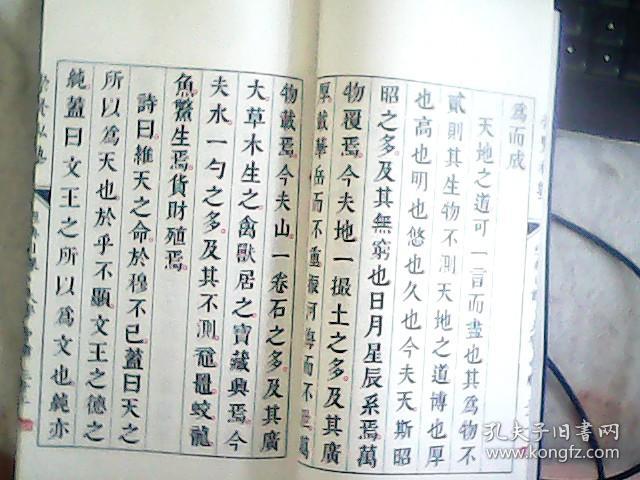 為而成
天地之道可一言而盡也其為物不
貳則其生物不測天地之道博也厚
也高也明也悠也久也今夫天斯昭
昭之多及其無窮也日月星辰系焉萬
物覆焉今夫地一撮土之多及其廣
厚載華岳而不重振河海而不洩萬
物載焉今夫山一卷石之多及其廣
大草木生之禽獸居之寶藏興焉今
夫水一勺之多及其不測黿鼉蛟龍
魚鱉生焉貨財殖焉
詩曰維天之命於穆不已蓋曰天之
所以為天也於乎不顯文王之德之
純蓋曰文王之所以為文也純亦
孔夫子旧书网
www.kongfz.com